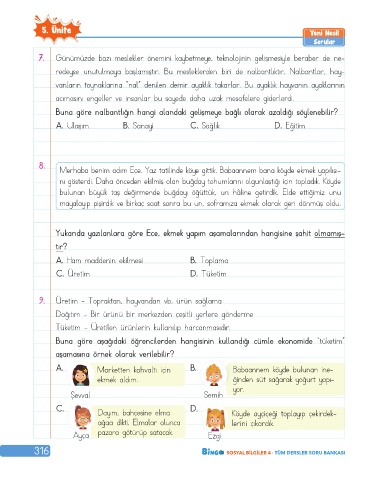 5. Ünite
Yeni Nesil
Sorular
7. Günümüzde bazı meslekler önemini kaybetmeye, teknolojinin gelişmesiyle beraber de ne-
redeyse unutulmaya başlamıştır. Bu mesleklerden biri de nalbantlıktır. Nalbantlar, hay-
vanların toynaklarına "nal" denilen demir ayaklık takarlar. Bu ayaklık hayvanın ayaklarının
acımasını engeller ve insanlar bu sayede daha uzak mesafelere giderlerdi.
Buna göre nalbantlığın hangi alandaki gelişmeye bağlı olarak azaldığı söylenebilir?
A. Ulaşım B. Sanayi C. Sağlık D. Eğitim
8. Merhaba benim adım Ece. Yaz tatilinde köye gittik. Babaannem bana köyde ekmek yapılışı-
nı gösterdi. Daha önceden ekilmiş olan buğday tohumlarını olgunlaştığı için topladık. Köyde
bulunan büyük taş değirmende buğday öğüttük, un hâline getirdik. Elde ettiğimiz unu
mayalayıp pişirdik ve birkaç saat sonra bu un, soframıza ekmek olarak geri dönmüş oldu.
Yukarıda yazılanlara göre Ece, ekmek yapım aşamalarından hangisine şahit olmamış-
tır?
A. Ham maddenin ekilmesi B. Toplama
C. Üretim D. Tüketim
9. Üretim - Topraktan, hayvandan vb. ürün sağlama
Dağıtım - Bir ürünü bir merkezden çeşitli yerlere gönderme
Tüketim - Üretilen ürünlerin kullanılıp harcanmasıdır.
Buna göre aşağıdaki öğrencilerden hangisinin kullandığı cümle ekonomide "tüketim"
aşamasına örnek olarak verilebilir?
A. Marketten kahvaltı için
ekmek aldım.
Şevval
B. Babaannem köyde bulunan ine-
ğinden süt sağarak yoğurt yapı-
yor.
Semih
C. Dayım, bahçesine elma
ağacı dikti. Elmalar olunca
pazara götürüp satacak.
Ayça
D. Köyde ayçiçeği toplayıp çekirdek-
lerini çıkardık.
Ezgi
316
BİNGO SOSYAL BİLGİLER 4 - TÜM DERSLER SORU BANKASI